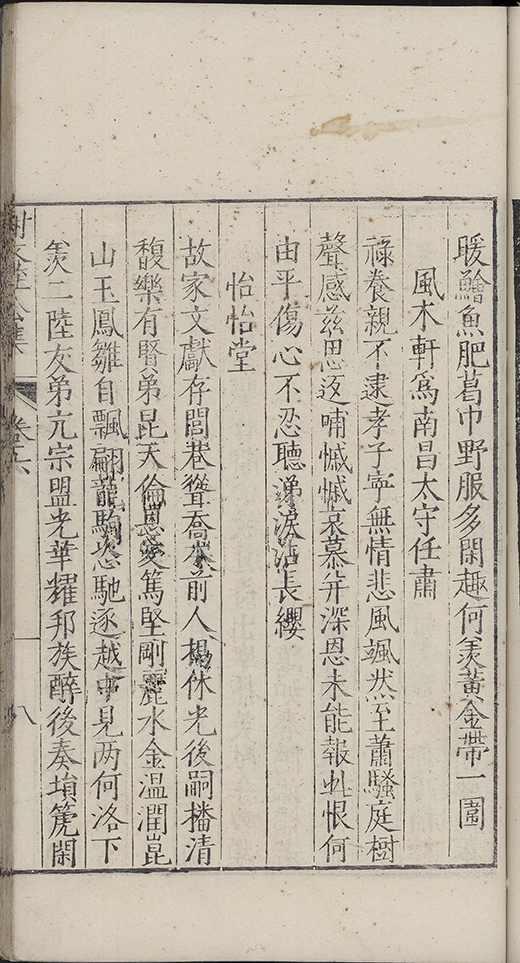 暖鱠魚肥葛巾野服多閑趣何羨黃金帶一圍
風木軒爲南昌太守任肅
祿養親不逮孝子寧無情悲風颯然至蕭騷庭樹
聲感兹思返哺慽慽哀慕并深恩未能報此恨何
由平傷心不忍聽涕淚沾長纓
怡怡堂
故家文獻存閭巷聳喬木前人揚休光後嗣播清
馥樂有賢弟昆天倫恩愛篤堅剛麗水金温潤崑
山玉鳳雛自飄翩龍駒恣馳逐越中見两何洛下
羨二陸友弟亢宗盟光華耀邦族醉後奏塤篪閑
集 卷之六 十八